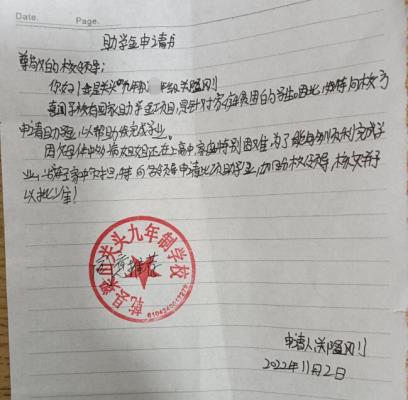 Date. Page.
助学金申请书
尊敬的校领导:
您好!我是关头九年制 年级关蹈刚
喜闻学校有国家助学金项目,是针对家庭贫困的学生。因此,特向校方
申请助学金,以帮助我完成学业。
因父母体弱多病姐姐还在上高中,家庭特别困难,为了能够顺利完成学
业,减轻家中负担,特向各领导申请此项助学金,加 校领导,核实并予
以批准!
乾县梁山关头九年制学校
同意推荐
6104240047879
申请人:关 刚
2022年11月2日